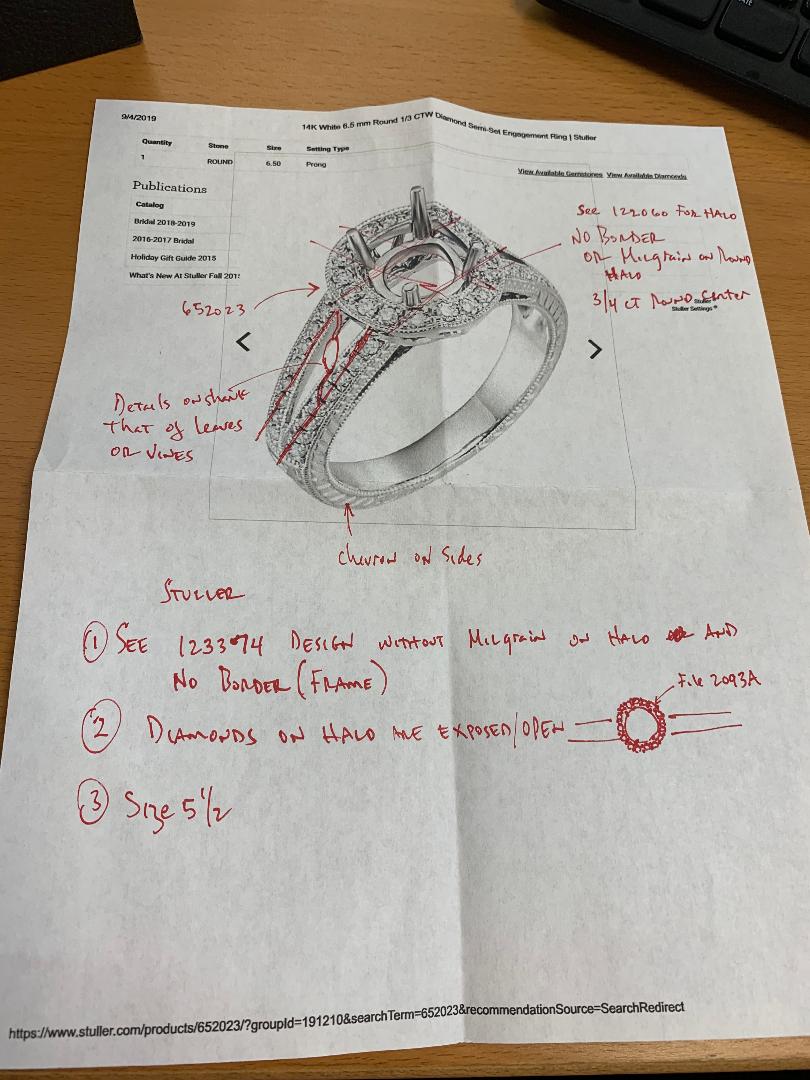 9/4/2019
14K White 6.5 mm Round 1/3 CTW Diamond Semi-Set Engagement Ring | Stuller
Quantity Stone Size Setting Type
1 ROUND 6.50 Prong
View Available Gemstones View Available Diamonds
Publications
Catalog
Bridal 2018-2019
2016-2017 Bridal
Holiday Gift Guide 2015
What's New At Stuller Fall 201
See 122060 For HALO
NO BORDER
OR Milgrain on Round
HALO
3/4 CT Round Center
Stuller Settings
652023
< >
Details on shank
that of leaves
OR VINES
Chevron on Sides
STULLER
① SEE 123374 DESIGN WITHOUT MILGRAIN ON HALO AND
NO BORDER (FRAME)
File 2093A
② DIAMONDS ON HALO ARE EXPOSED/OPEN
③ Size 5 1/2
https://www.stuller.com/products/652023/?groupId=191210&searchTerm=652023&recommendationSource=SearchRedirect